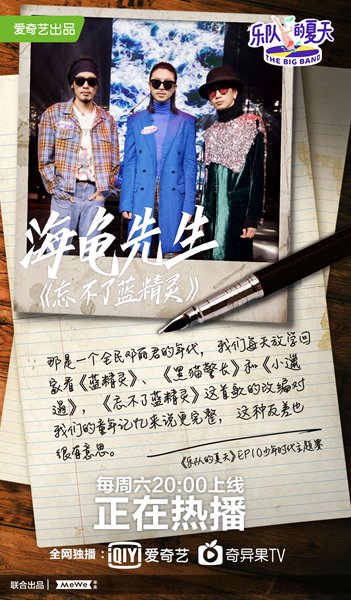 爱奇艺出品
乐队的夏天
THE BIG BAND
海龟先生
《忘不了蓝精灵》
那是一个全民邓丽君的年代，我们每天放学回
家看《蓝精灵》、《黑猫警长》和《小邋
遢》，《忘不了蓝精灵》这首歌的改编对
我们的童年记忆来说更完整，这种反差也
很有意思。
《乐队的夏天》EP10少年时代主题赛
每周六20:00上线
正在热播
全网独播：
iQIYI 爱奇艺
奇异果TV
联合出品
MeWe